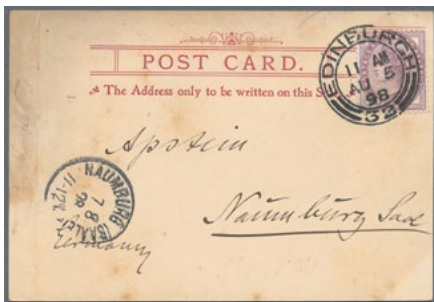 POST CARD.
The Address only to be written on this S
EDINBURGH
11 AM
AU 5
98
32
Apstein
Naumburg Saal
Germany
NAUMBURG (SAALE)
7 8
98
11-12V.